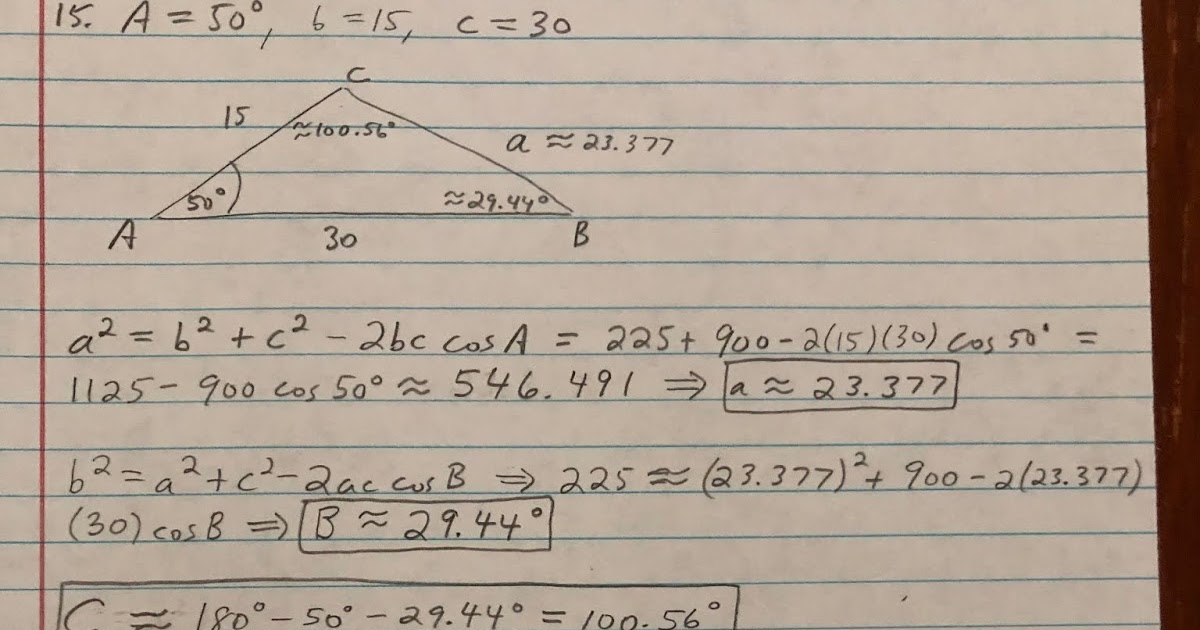 15. A = 50°, b = 15, c = 30
C
15
≈100.56°
a ≈ 23.377
50°
≈29.44°
A
30
B
a² = b² + c² - 2bc cos A = 225 + 900 - 2(15)(30) cos 50° =
1125 - 900 cos 50° ≈ 546.491 ⇒ a ≈ 23.377
b² = a² + c² - 2ac cos B ⇒ 225 ≈ (23.377)² + 900 - 2(23.377)
(30) cos B ⇒ B ≈ 29.44°
C ≈ 180° - 50° - 29.44° = 100.56°